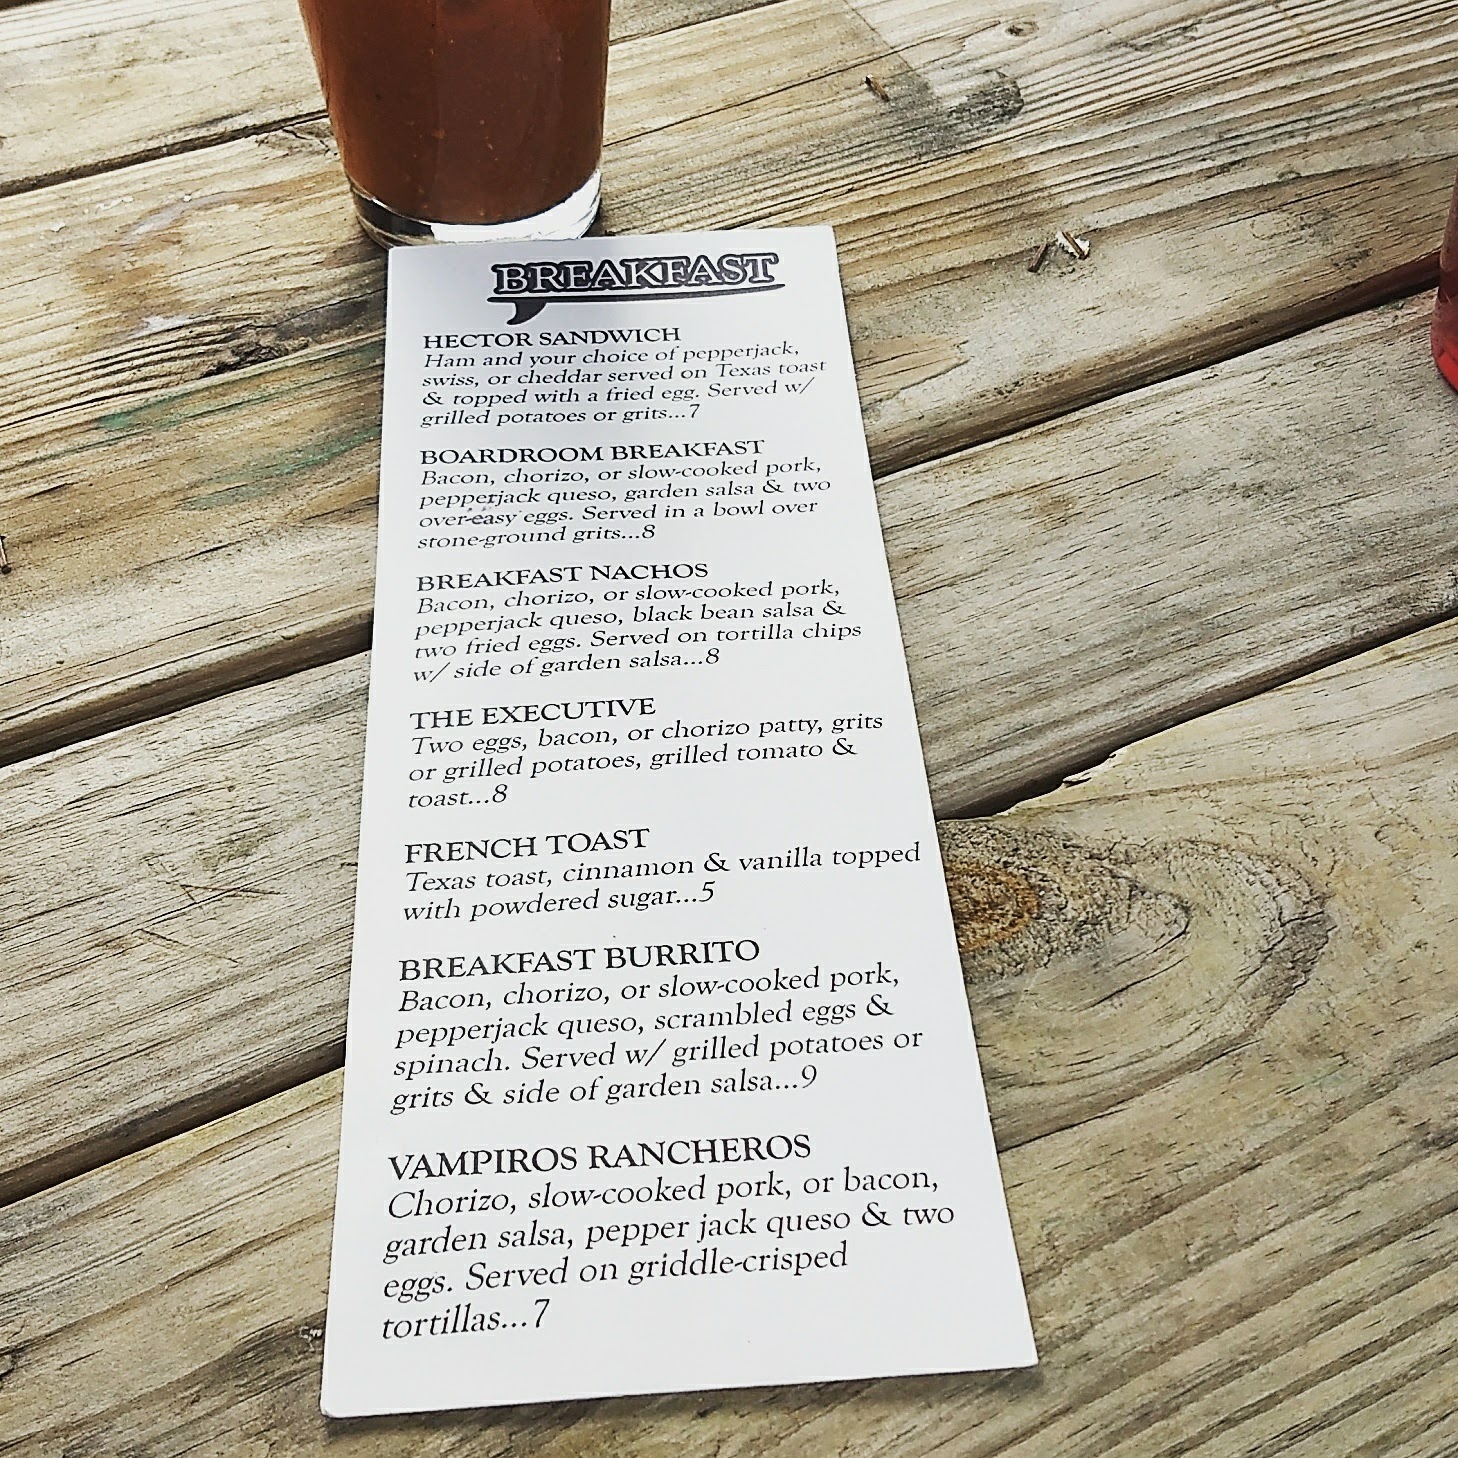 BREAKFAST
HECTOR SANDWICH
Ham and your choice of pepperjack,
swiss, or cheddar served on Texas toast
& topped with a fried egg. Served w/
grilled potatoes or grits...7
BOARDROOM BREAKFAST
Bacon, chorizo, or slow-cooked pork,
pepperjack queso, garden salsa & two
over-easy eggs. Served in a bowl over
stone-ground grits...8
BREAKFAST NACHOS
Bacon, chorizo, or slow-cooked pork,
pepperjack queso, black bean salsa &
two fried eggs. Served on tortilla chips
w/ side of garden salsa...8
THE EXECUTIVE
Two eggs, bacon, or chorizo patty, grits
or grilled potatoes, grilled tomato &
toast...8
FRENCH TOAST
Texas toast, cinnamon & vanilla topped
with powdered sugar...5
BREAKFAST BURRITO
Bacon, chorizo, or slow-cooked pork,
pepperjack queso, scrambled eggs &
spinach. Served w/ grilled potatoes or
grits & side of garden salsa...9
VAMPIROS RANCHEROS
Chorizo, slow-cooked pork, or bacon,
garden salsa, pepper jack queso & two
eggs. Served on griddle-crisped
tortillas...7